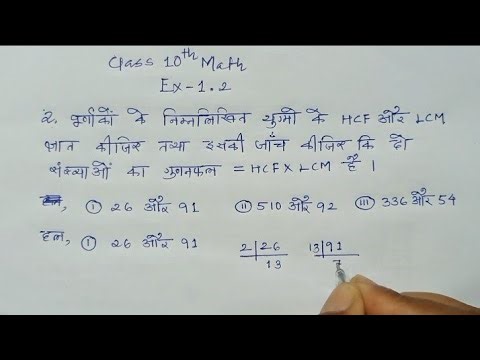 Class 10th Math
Ex-1.2
2. पूर्णांकों के निम्नलिखित युग्मों के HCF और LCM
ज्ञात कीजिए तथा इसकी जाँच कीजिए कि दो
संख्याओं का गुणनफल = HCF X LCM है ।
हल, (i) 26 और 91 (ii) 510 और 92 (iii) 336 और 54
हल, (i) 26 और 91 2 | 26 13 | 91
13 7